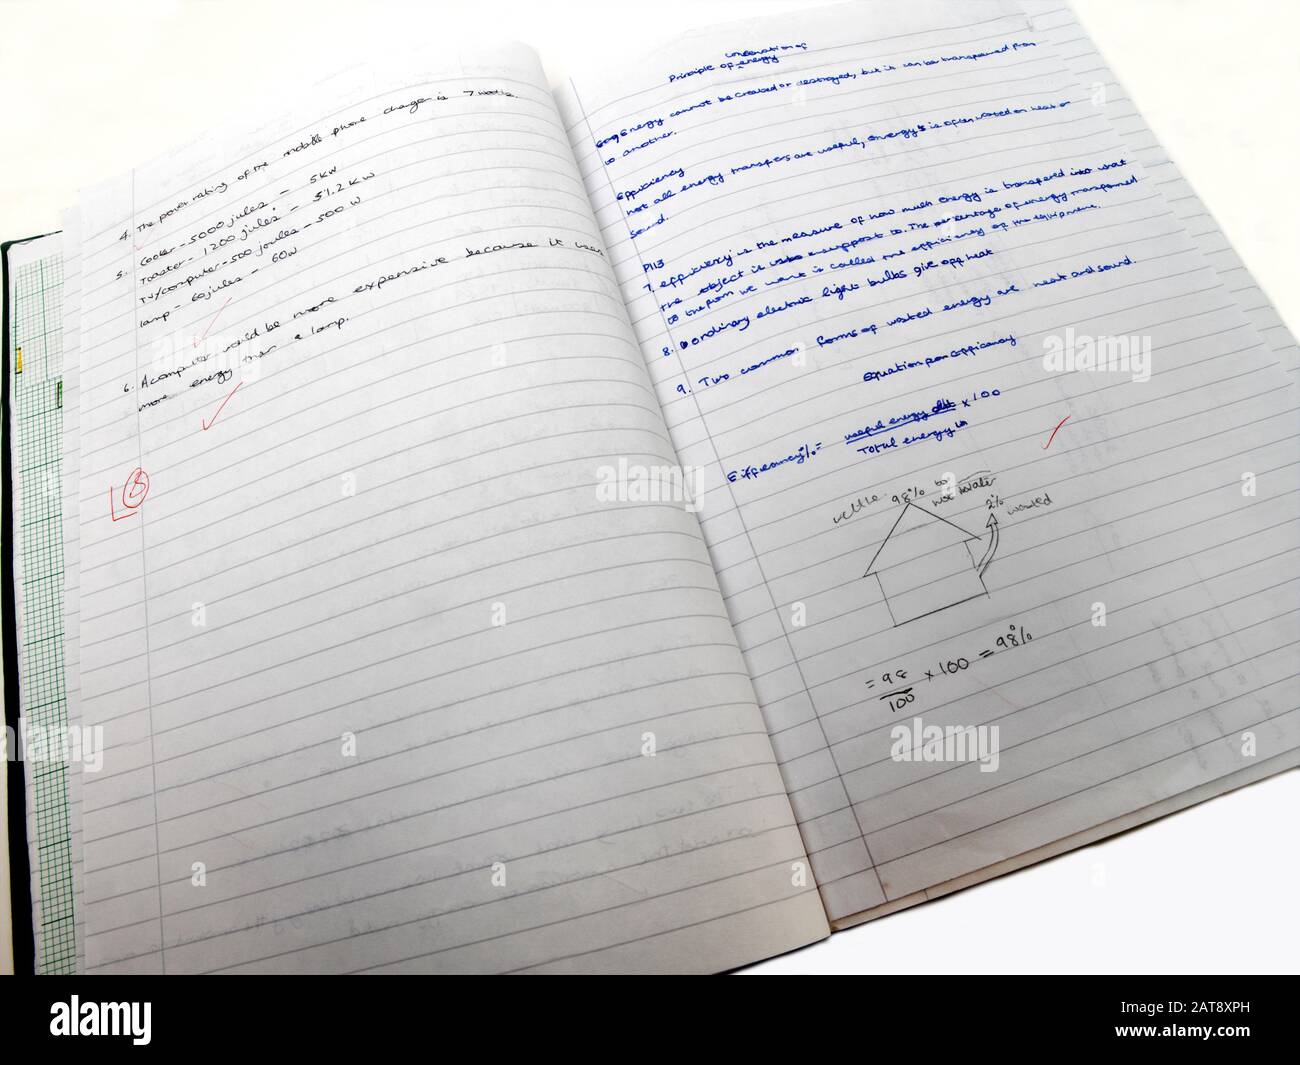 4. The power rating of the mobile phone charger is 7 watts.
5. Cooker - 5000 jules - 5KW
Toaster - 1200 jules -
TV/computer - 500 joules - 500 W
lamp - 60 jules - 60W
6. A computer would be more expensive because it uses
more energy than a lamp.
Principle of energy
Energy cannot be created or destroyed, but it can be transferred from
to another.
Efficiency
not all energy transfers are useful, energy is often wasted as heat or
sound.
P113
7. efficiency is the measure of how much energy is transferd into what
the object is to. The percentage of energy transferred
to the form we want is called the efficiency of the equipment.
8. ordinary electric light bulbs give off heat
9. Two common forms of wasted energy are heat and sound.
Equation for efficiency
Efficiency % = useful energy × 100
Total energy in
kettle 98% to
hot water
2% wasted
= 98
100
× 100 = 98%
alamy
a
alamy
Image ID: 2AT8XPH
www.alamy.com